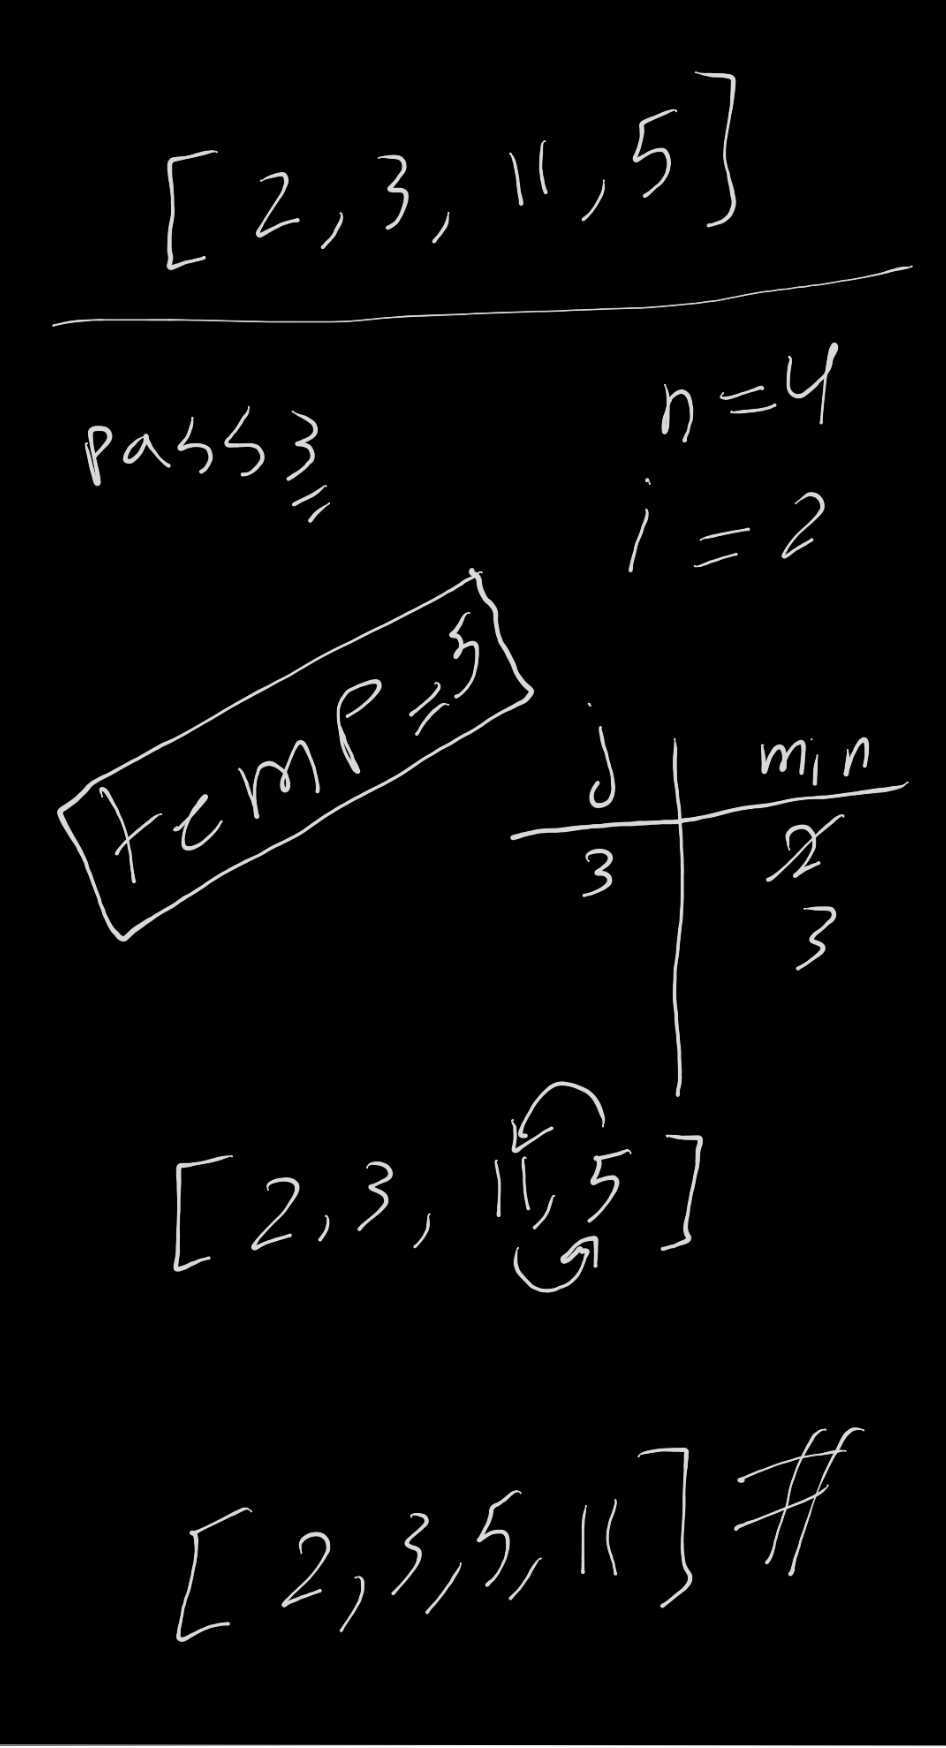 [2, 3, 11, 5]
pass3
n=4
i=2
temp=5
j min
3 2
3
[2, 3, 11, 5]
[2, 3, 5, 11] #